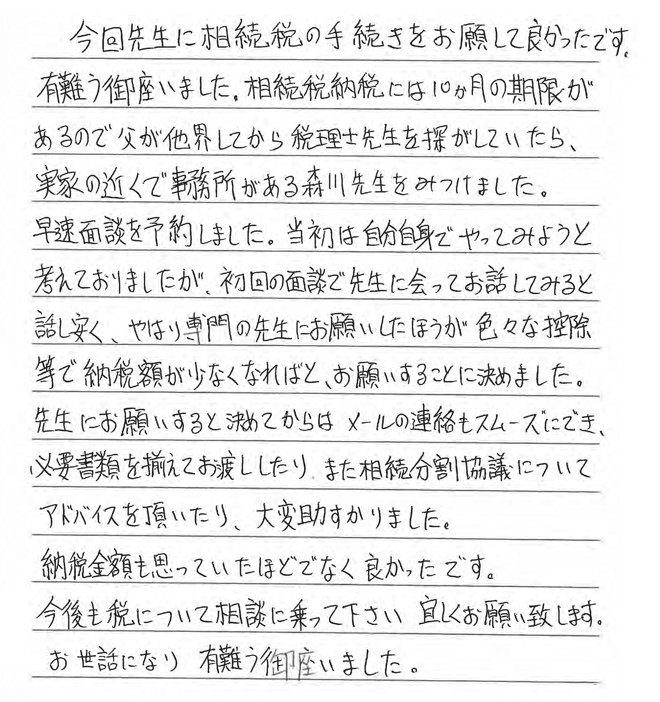 今回先生に相続税の手続きをお願して良かったです。
有難う御座いました。相続税納税には10ヵ月の期限が
あるので父が他界してから税理士先生を探がしていたら、
実家の近くで事務所がある森川先生をみつけました。
早速面談を予約しました。当初は自分自身でやってみようと
考えておりましたが、初回の面談で先生に会ってお話してみると
話し安く、やはり専門の先生にお願いしたほうが色々な控除
等で納税額が少なくなればと、お願いすることに決めました。
先生にお願いすると決めてからはメールの連絡もスムーズにでき、
必要書類を揃えてお渡ししたり、また相続分割協議について
アドバイスを頂いたり、大変助すかりました。
納税金額も思っていたほどでなく良かったです。
今後も税について相談に乗って下さい 宜しくお願い致します。
お世話になり 有難う御座いました。